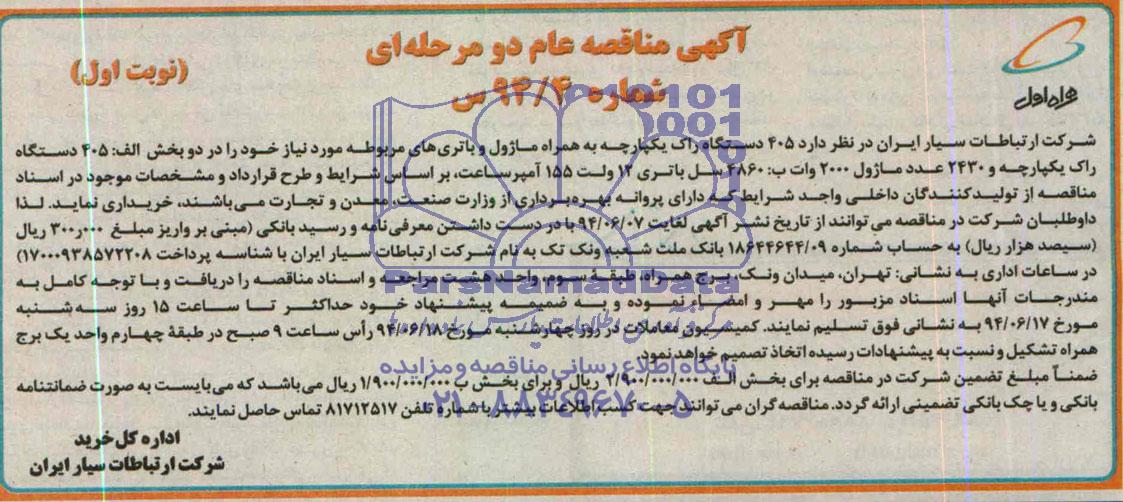 آگهی مناقصه عام دو مرحله‌ای
شماره ۹۴/۴ س
(نوبت اول)
همراه اول
شرکت ارتباطات سیار ایران در نظر دارد ۴۰۵ دستگاه راک یکپارچه به همراه ماژول و باتری‌های مربوطه مورد نیاز خود را در دو بخش الف: ۴۰۵ دستگاه
راک یکپارچه و ۲۴۳۰ عدد ماژول ۲۰۰۰ وات ب: ۴۸۶۰ سل باتری ۱۲ ولت ۱۵۵ آمپرساعت، بر اساس شرایط و طرح قرارداد و مشخصات موجود در اسناد
مناقصه از تولیدکنندگان داخلی واجد شرایط که دارای پروانه بهره‌برداری از وزارت صنعت، معدن و تجارت می‌باشند، خریداری نماید. لذا
داوطلبان شرکت در مناقصه می‌توانند از تاریخ نشر آگهی لغایت ۹۴/۰۶/۰۷ با در دست داشتن معرفی‌نامه و رسید بانکی (مبنی بر واریز مبلغ ۳۰۰ر۰۰۰ ریال
(سیصد هزار ریال) به حساب شماره ۱۸۶۴۴۶۴۴/۰۹ بانک ملت شعبه ونک تک به نام شرکت ارتباطات سیار ایران با شناسه پرداخت ۱۷۰۰۰۹۳۸۵۷۲۲۰۸)
در ساعات اداری به نشانی: تهران، میدان ونک، برج همراه، طبقهٔ سوم، واحد هشت مراجعه و اسناد مناقصه را دریافت و با توجه کامل به
مندرجات آنها اسناد مزبور را مهر و امضاء نموده و به ضمیمه پیشنهاد خود حداکثر تا ساعت ۱۵ روز سه‌شنبه
مورخ ۹۴/۰۶/۱۷ به نشانی فوق تسلیم نمایند. کمیسیون معاملات در روز چهارشنبه مورخ ۹۴/۰۶/۱۸ رأس ساعت ۹ صبح در طبقهٔ چهارم واحد یک برج
همراه تشکیل و نسبت به پیشنهادات رسیده اتخاذ تصمیم خواهد نمود.
ضمناً مبلغ تضمین شرکت در مناقصه برای بخش الف ۲/۹۰۰/۰۰۰/۰۰۰ ریال و برای بخش ب ۱/۹۰۰/۰۰۰/۰۰۰ ریال می‌باشد که می‌بایست به صورت ضمانتنامه
بانکی و یا چک بانکی تضمینی ارائه گردد. مناقصه‌گران می‌توانند جهت کسب اطلاعات بیشتر با شماره تلفن ۸۱۷۱۲۵۱۷ تماس حاصل نمایند.
اداره کل خرید
شرکت ارتباطات سیار ایران
ParsNamadData
پایگاه اطلاع رسانی مناقصه و مزایده
۰۲۱-۸۸۳۴۹۶۷۰-۵